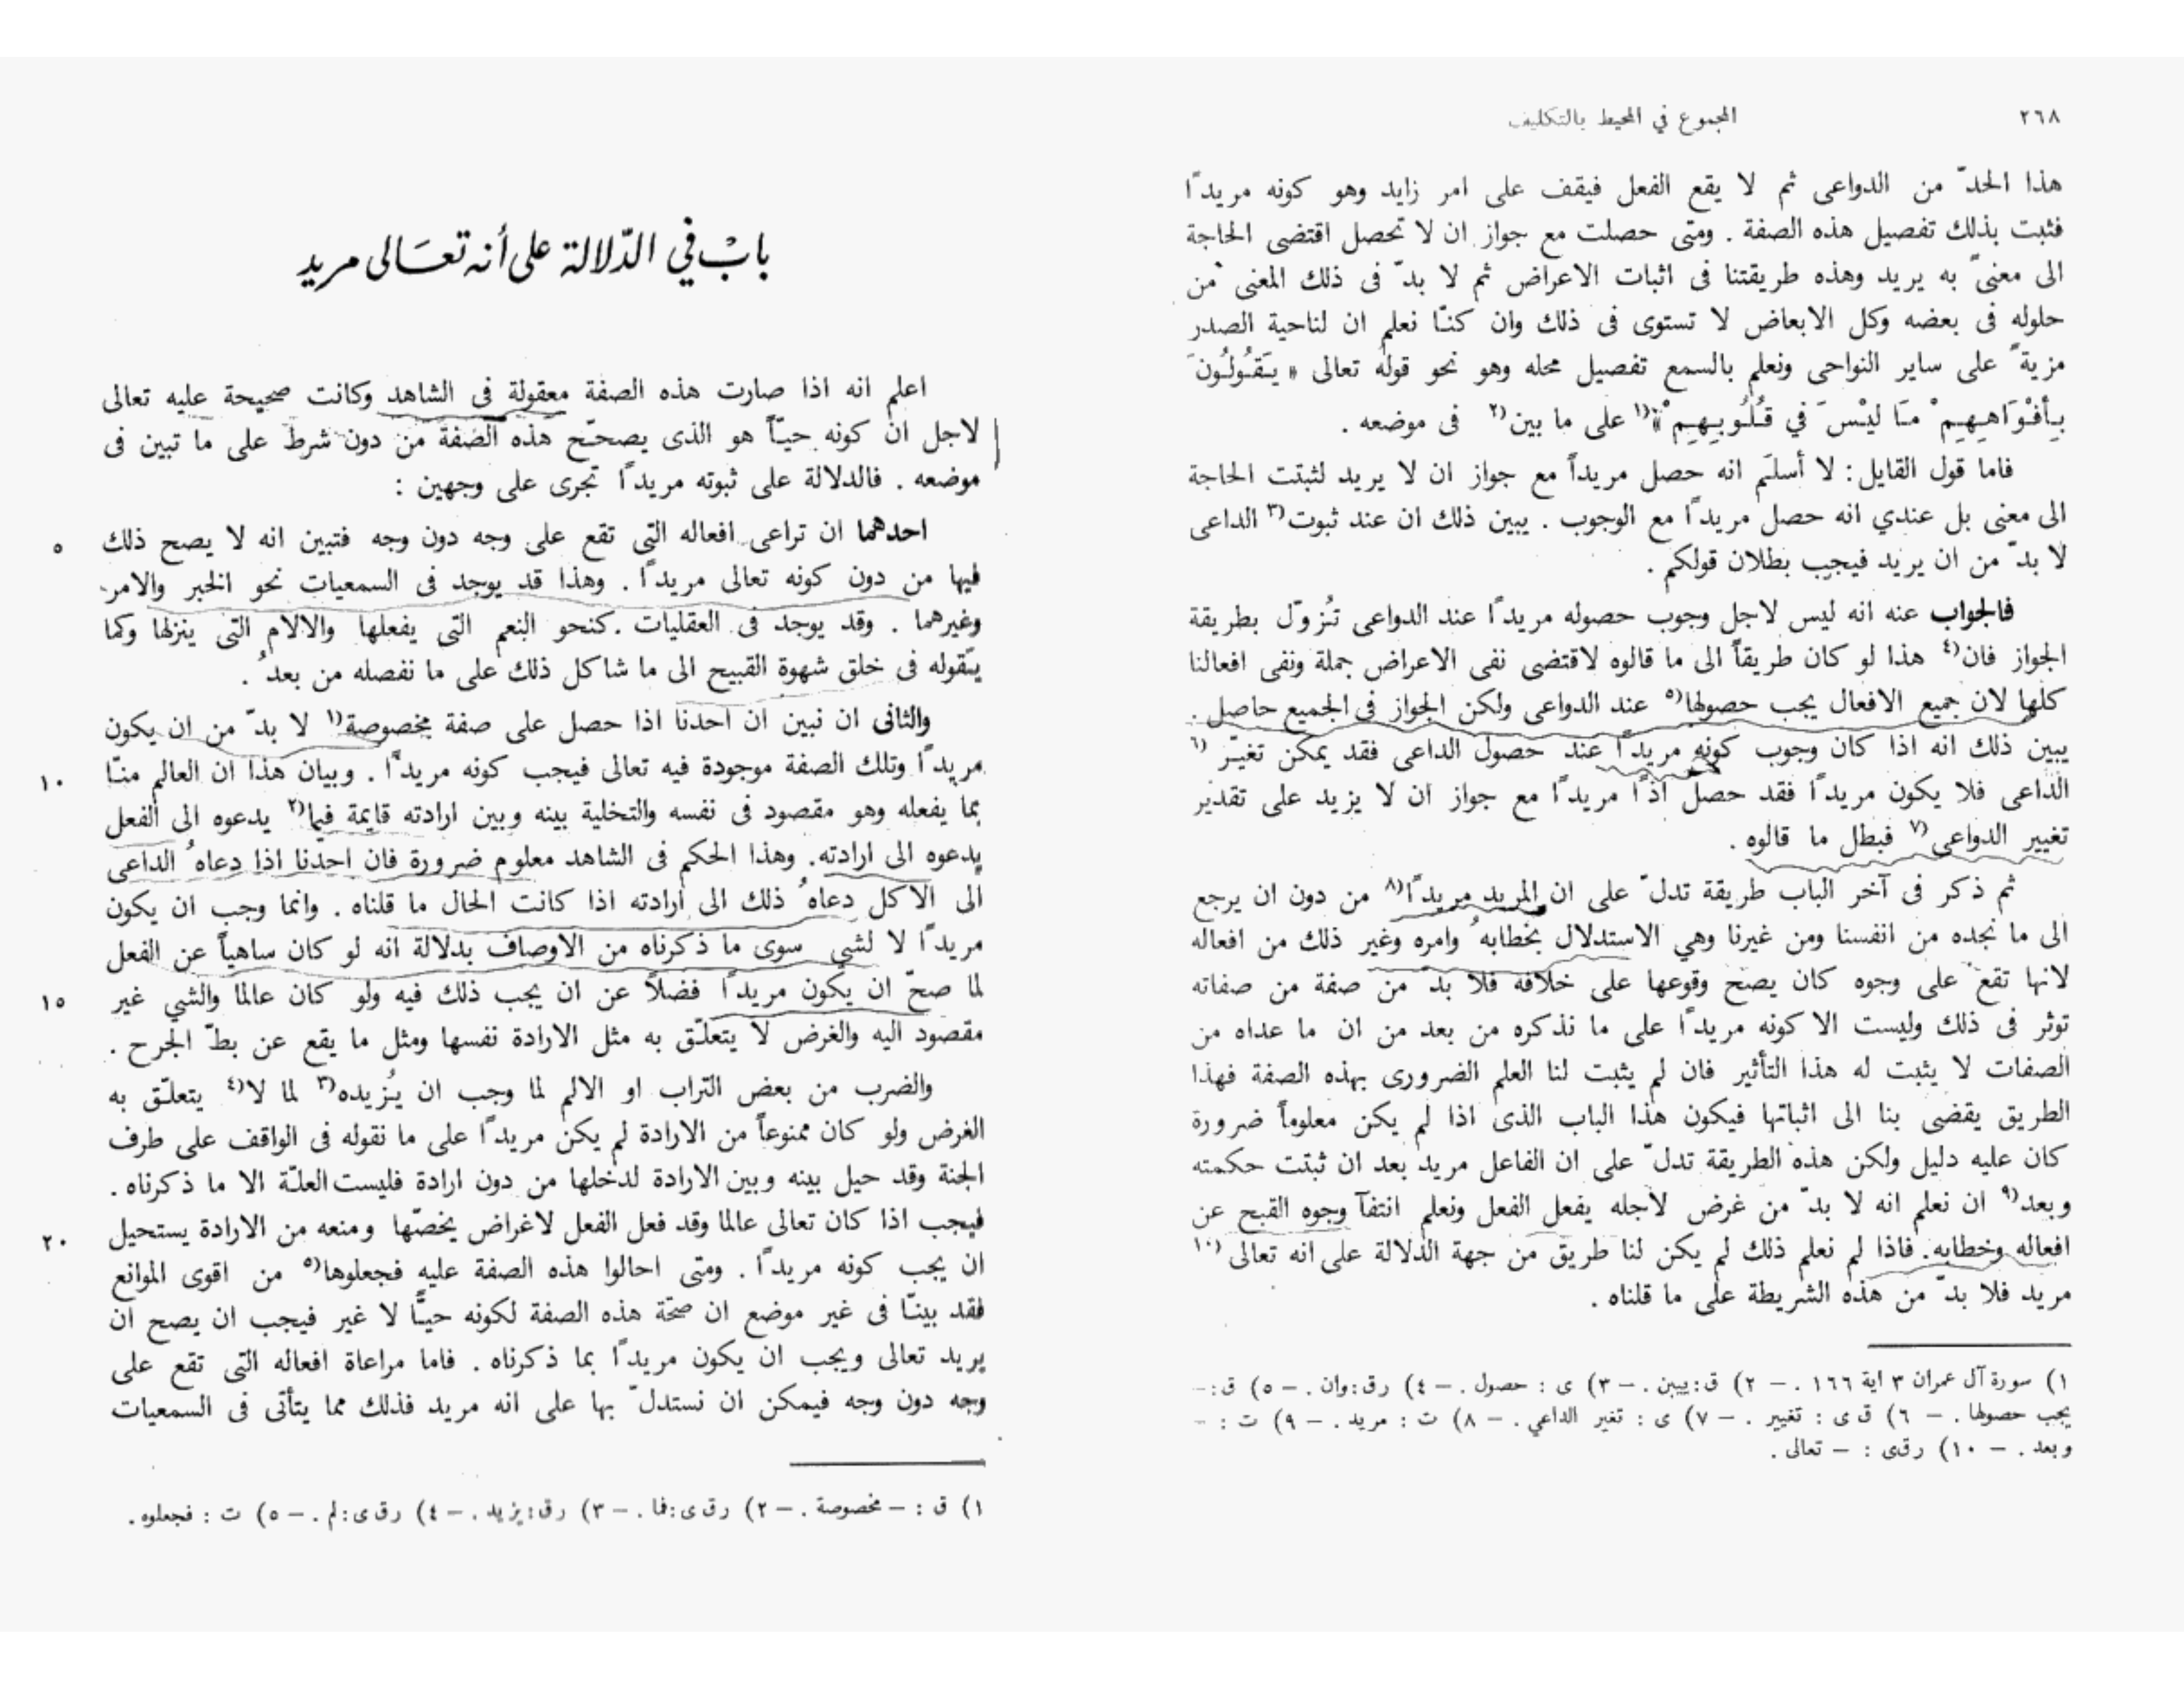 ٢٦٨
المجموع في المحيط بالتكليف
هذا الحدّ من الدواعى ثم لا يقع الفعل فيقف على امر زايد وهو كونه مريداً
فثبت بذلك تفصيل هذه الصفة . ومتى حصلت مع جواز ان لا تحصل اقتضى الحاجة
الى معنىً به يريد وهذه طريقتنا فى اثبات الاعراض ثم لا بدّ فى ذلك المعنى من
حلوله فى بعضه وكل الابعاض لا تستوى فى ذلك وان كنّا نعلم ان لناحية الصدر
مزيةً على ساير النواحى ونعلم بالسمع تفصيل محله وهو نحو قوله تعالى « يَقُولُونَ
بِأَفْوَاهِهِمْ مَا لَيْسَ في قُلُوبِهِمْ »(١ على ما بين(٢ فى موضعه .
فاما قول القايل : لا أسلّم انه حصل مريداً مع جواز ان لا يريد لثبتت الحاجة
الى معنى بل عندي انه حصل مريداً مع الوجوب . يبين ذلك ان عند ثبوت(٣ الداعى
لا بدّ من ان يريد فيجب بطلان قولكم .
فالجواب عنه انه ليس لاجل وجوب حصوله مريداً عند الدواعى تُزوّل بطريقة
الجواز فان(٤ هذا لو كان طريقاً الى ما قالوه لاقتضى نفى الاعراض جملة ونفى افعالنا
كلها لان جميع الافعال يجب حصولها(٥ عند الدواعى ولكن الجواز فى الجميع حاصل .
يبين ذلك انه اذا كان وجوب كونه مريداً عند حصول الداعى فقد يمكن تغيّر(٦
الداعى فلا يكون مريداً فقد حصل اذاً مريداً مع جواز ان لا يزيد على تقدير
تغيير الدواعى(٧ فبطل ما قالوه .
ثم ذكر فى آخر الباب طريقة تدلّ على ان المريد مريداً(٨ من دون ان يرجع
الى ما نجده من انفسنا ومن غيرنا وهي الاستدلال بخطابه وامره وغير ذلك من افعاله
لانها تقع على وجوه كان يصح وقوعها على خلافه فلا بدّ من صفة من صفاته
توثر فى ذلك وليست الا كونه مريداً على ما نذكره من بعد من ان ما عداه من
الصفات لا يثبت له هذا التأثير فان لم يثبت لنا العلم الضرورى بهذه الصفة فهذا
الطريق يقضى بنا الى اثباتها فيكون هذا الباب الذى اذا لم يكن معلوماً ضرورة
كان عليه دليل ولكن هذه الطريقة تدلّ على ان الفاعل مريد بعد ان ثبتت حكمته
وبعد(٩ ان نعلم انه لا بدّ من غرض لاجله يفعل الفعل ونعلم انتفآ وجوه القبح عن
افعاله وخطابه . فاذا لم نعلم ذلك لم يكن لنا طريق من جهة الدلالة على انه تعالى(١٠
مريد فلا بدّ من هذه الشريطة على ما قلناه .
١) سورة آل عمران ٣ اية ١٦٦ . – ٢) ق : يبين . – ٣) ى : حصول . – ٤) رق : وان . – ٥) ق : –
يجب حصولها . – ٦) ق ى : تغيير . – ٧) ى : تغير الداعي . – ٨) ت : مريد . – ٩) ت : –
وبعد . – ١٠) رقى : – تعالى .
بابْ في الدّلالة على أنه تعَالى مريد
اعلم انه اذا صارت هذه الصفة معقولة فى الشاهد وكانت صحيحة عليه تعالى
لاجل ان كونه حيّاً هو الذى يصحّح هذه الصفة من دون شرط على ما تبين فى
موضعه . فالدلالة على ثبوته مريداً تجرى على وجهين :
احدهما ان تراعى افعاله التى تقع على وجه دون وجه فتبين انه لا يصح ذلك ٥
فيها من دون كونه تعالى مريداً . وهذا قد يوجد فى السمعيات نحو الخبر والامر
وغيرهما . وقد يوجد فى العقليات كنحو النعم التى يفعلها والالام التى ينزلها وكما
يتقوله فى خلق شهوة القبيح الى ما شاكل ذلك على ما نفصله من بعدُ .
والثانى ان نبين ان احدنا اذا حصل على صفة مخصوصة(١ لا بدّ من ان يكون
مريداً وتلك الصفة موجودة فيه تعالى فيجب كونه مريداً . وبيان هذا ان العالم منّا ١٠
بما يفعله وهو مقصود فى نفسه والتخلية بينه وبين ارادته قايمة فيما(٢ يدعوه الى الفعل
يدعوه الى ارادته . وهذا الحكم فى الشاهد معلوم ضرورة فان احدنا اذا دعاه الداعى
الى الاكل دعاه ذلك الى ارادته اذا كانت الحال ما قلناه . وانما وجب ان يكون
مريداً لا لشي سوى ما ذكرناه من الاوصاف بدلالة انه لو كان ساهياً عن الفعل
لما صحّ ان يكون مريداً فضلاً عن ان يجب ذلك فيه ولو كان عالما والشي غير ١٥
مقصود اليه والغرض لا يتعلّق به مثل الارادة نفسها ومثل ما يقع عن بطّ الجرح .
والضرب من بعض التراب او الالم لما وجب ان يُزيده(٣ لما لا(٤ يتعلّق به
الغرض ولو كان ممنوعاً من الارادة لم يكن مريداً على ما نقوله فى الواقف على طرف
الجنة وقد حيل بينه وبين الارادة لدخلها من دون ارادة فليست العلّة الا ما ذكرناه .
فيجب اذا كان تعالى عالما وقد فعل الفعل لاغراض يخصّها ومنعه من الارادة يستحيل ٢٠
ان يجب كونه مريداً . ومتى احالوا هذه الصفة عليه فجعلوها(٥ من اقوى الموانع
فقد بينّا فى غير موضع ان صحّة هذه الصفة لكونه حيّاً لا غير فيجب ان يصح ان
يريد تعالى ويجب ان يكون مريداً بما ذكرناه . فاما مراعاة افعاله التى تقع على
وجه دون وجه فيمكن ان نستدلّ بها على انه مريد فذلك مما يتأتى فى السمعيات
١) ق : – مخصوصة . – ٢) رق ى : فما . – ٣) رق : يزيد . – ٤) رق ى : لم . – ٥) ت : فجعلوه .